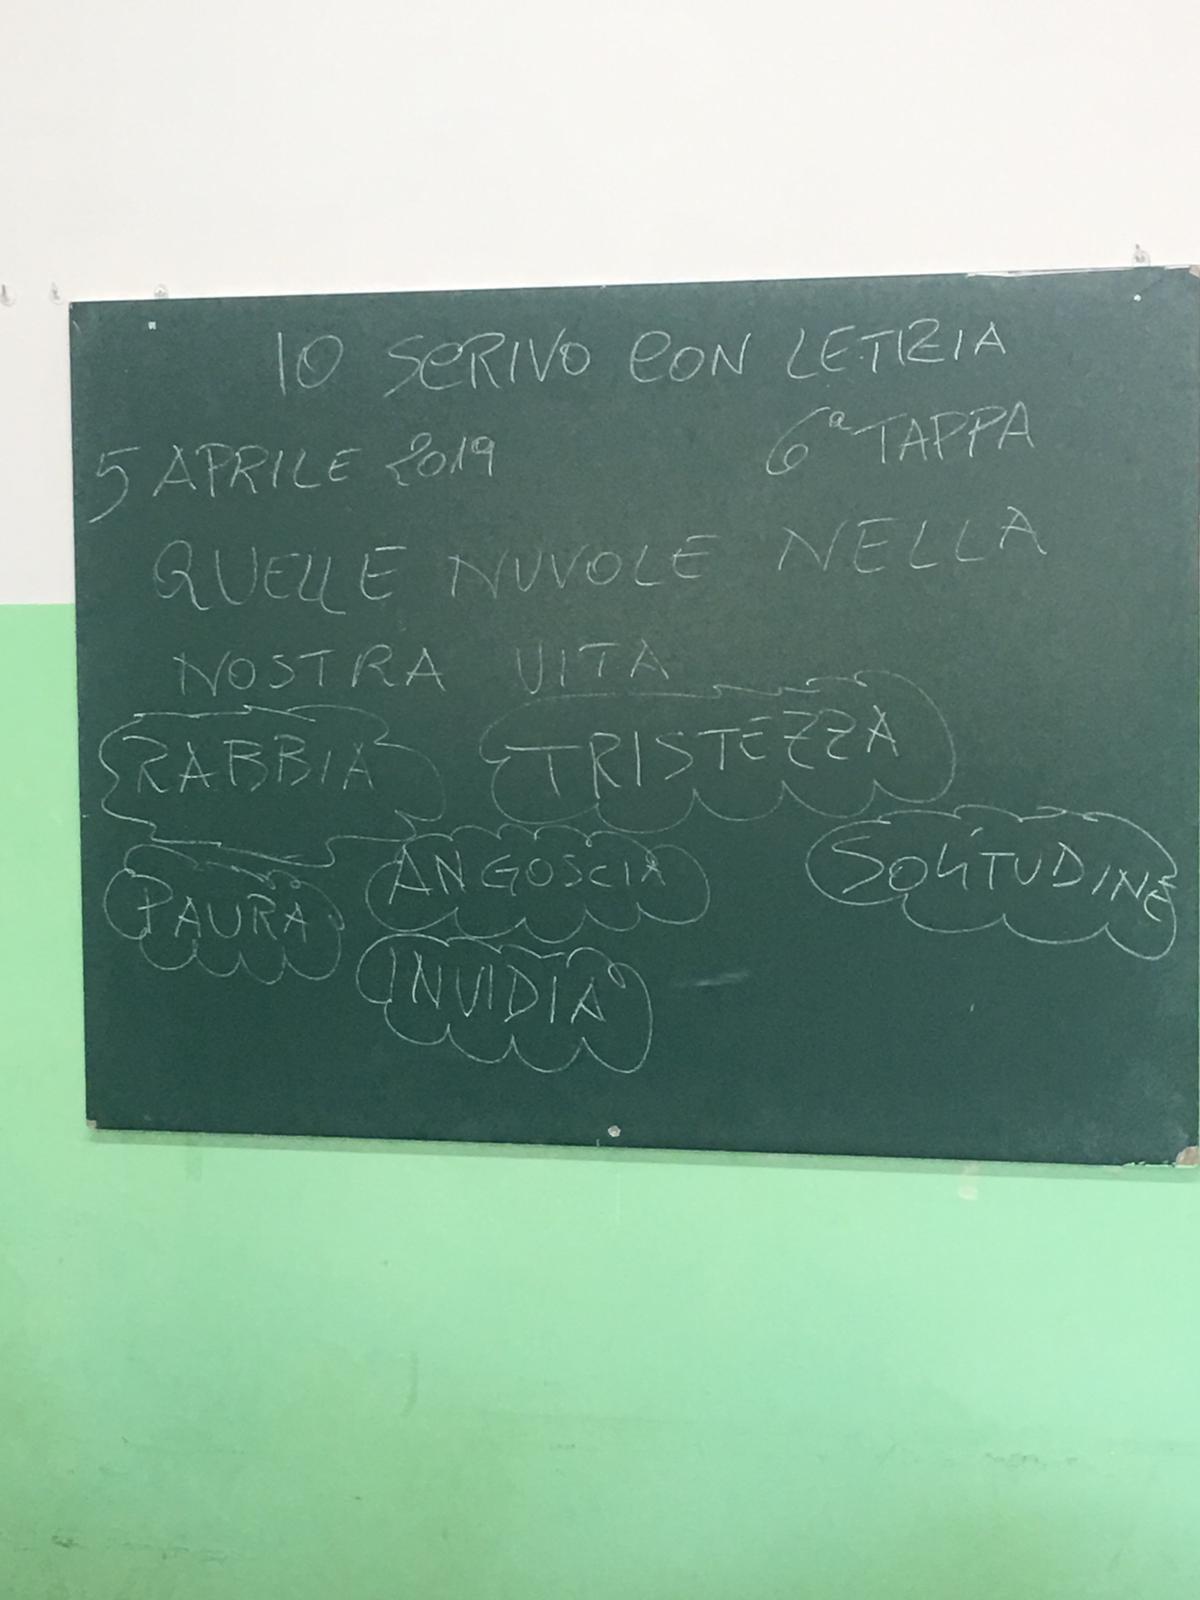 IO SCRIVO CON LETIZIA
5 APRILE 2019 6ª TAPPA
QUELLE NUVOLE NELLA
NOSTRA VITA
RABBIA TRISTEZZA
PAURA ANGOSCIA SOLITUDINE
INVIDIA